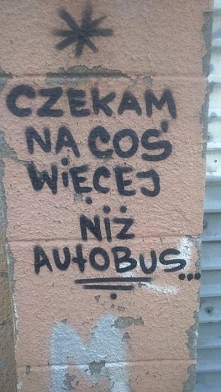 *
CZEKAM
NA COŚ
WIĘCEJ
NIŻ
AUTOBUS...
M